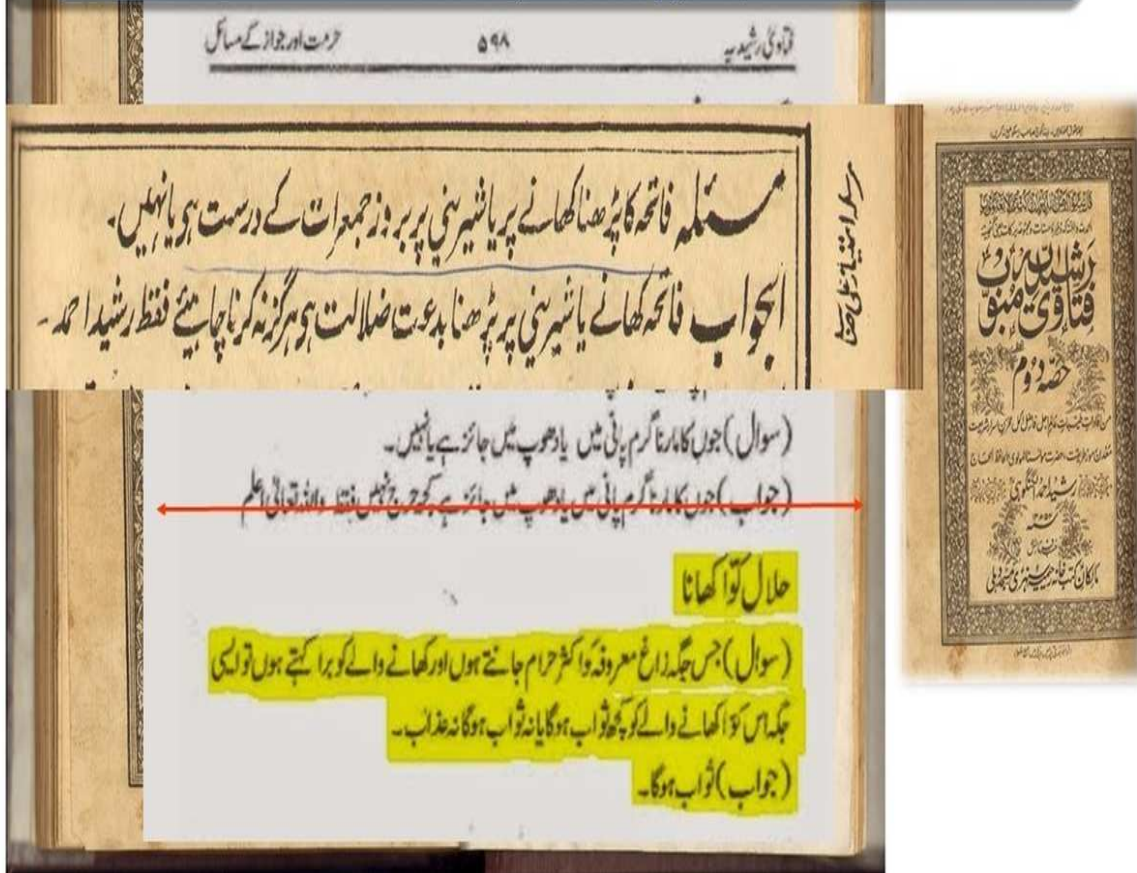 فتاویٰ رشیدیہ
۵۹۸
حرمت اور جواز کے مسائل
مسئلہ فاتحہ کا پڑھنا کھانے پر یا شیرینی پر بروز جمعرات کے درست ہو یا نہیں۔
الجواب فاتحہ کھانے یا شیرینی پر پڑھنا بدعت ضلالت ہی ہرگز نہ کرنا چاہیئے فقط رشید احمد۔
(سوال) جوں کا مارنا گرم پانی میں یا دھوپ میں جائز ہے یا نہیں۔
(جواب) جوں کا مارنا گرم پانی میں یا دھوپ میں جائز ہے کچھ حرج نہیں فقط واللہ تعالیٰ اعلم
حلال کوّا کھانا
(سوال) جس جگہ زاغ معروفہ کو اکثر حرام جانتے ہوں اور کھانے والے کو برا کہتے ہوں تو ایسی
جگہ اس کوّا کھانے والے کو کچھ ثواب ہوگا یا نہ ثواب ہوگا نہ عذاب۔
(جواب) ثواب ہوگا۔
مرسلہ امتیاز علی
فتاویٰ
حصہ دوم
رشید احمد